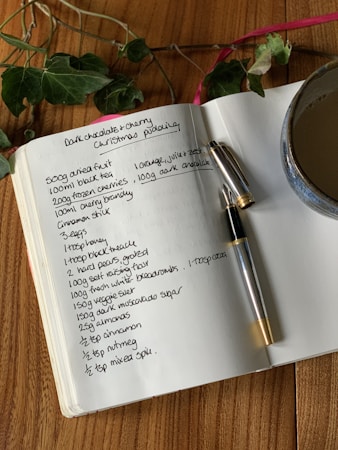 Dark chocolate + cherry
Christmas pudding
500g dried fruit
100ml black tea 1 orange, juice + zest
200g frozen cherries, 100g dark chocolate
100ml cherry brandy
Cinnamon stick
3 eggs
1 tbsp honey
1 tbsp black treacle
2 hard pears, grated
100g self raising flour
100g fresh white breadcrumbs. 1 tbsp cocoa
150g veggie suet
150g dark muscavado sugar
25g almonds
½ tsp cinnamon
½ tsp nutmeg
½ tsp mixed spice.